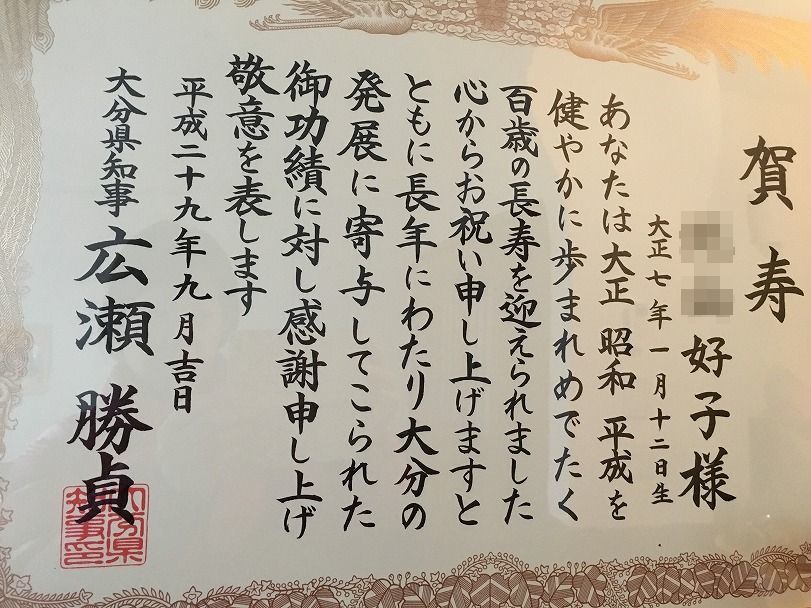 賀寿
好子様
大正七年一月十二日生
あなたは大正 昭和 平成を
健やかに歩まれめでたく
百歳の長寿を迎えられました
心からお祝い申し上げますと
ともに長年にわたり大分の
発展に寄与してこられた
御功績に対し感謝申し上げ
敬意を表します
平成二十九年九月吉日
大分県知事 広瀬勝貞
大分県知事印